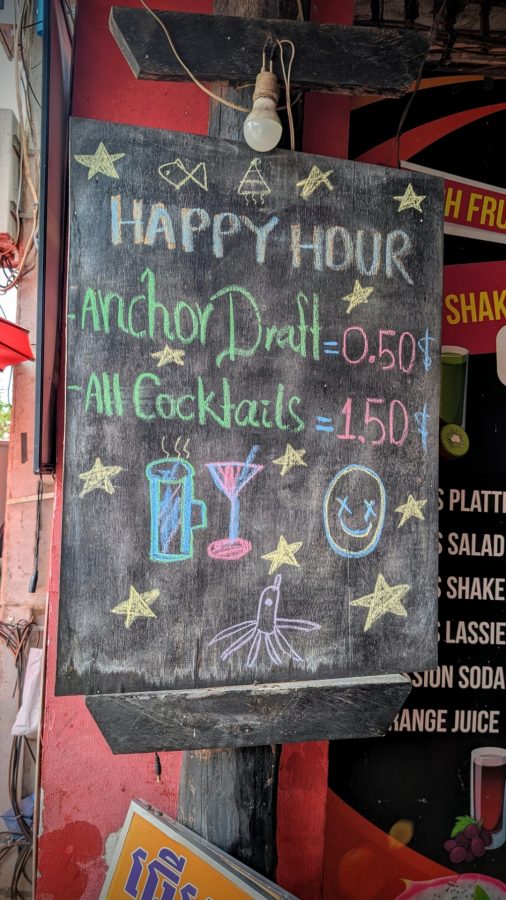 HAPPY HOUR
-Anchor Draft = 0.50$
-All Cocktails = 1.50$
H FRU
SHAK
S PLATT
S SALAD
S SHAKE
S LASSIE
SION SODA
RANGE JUICE